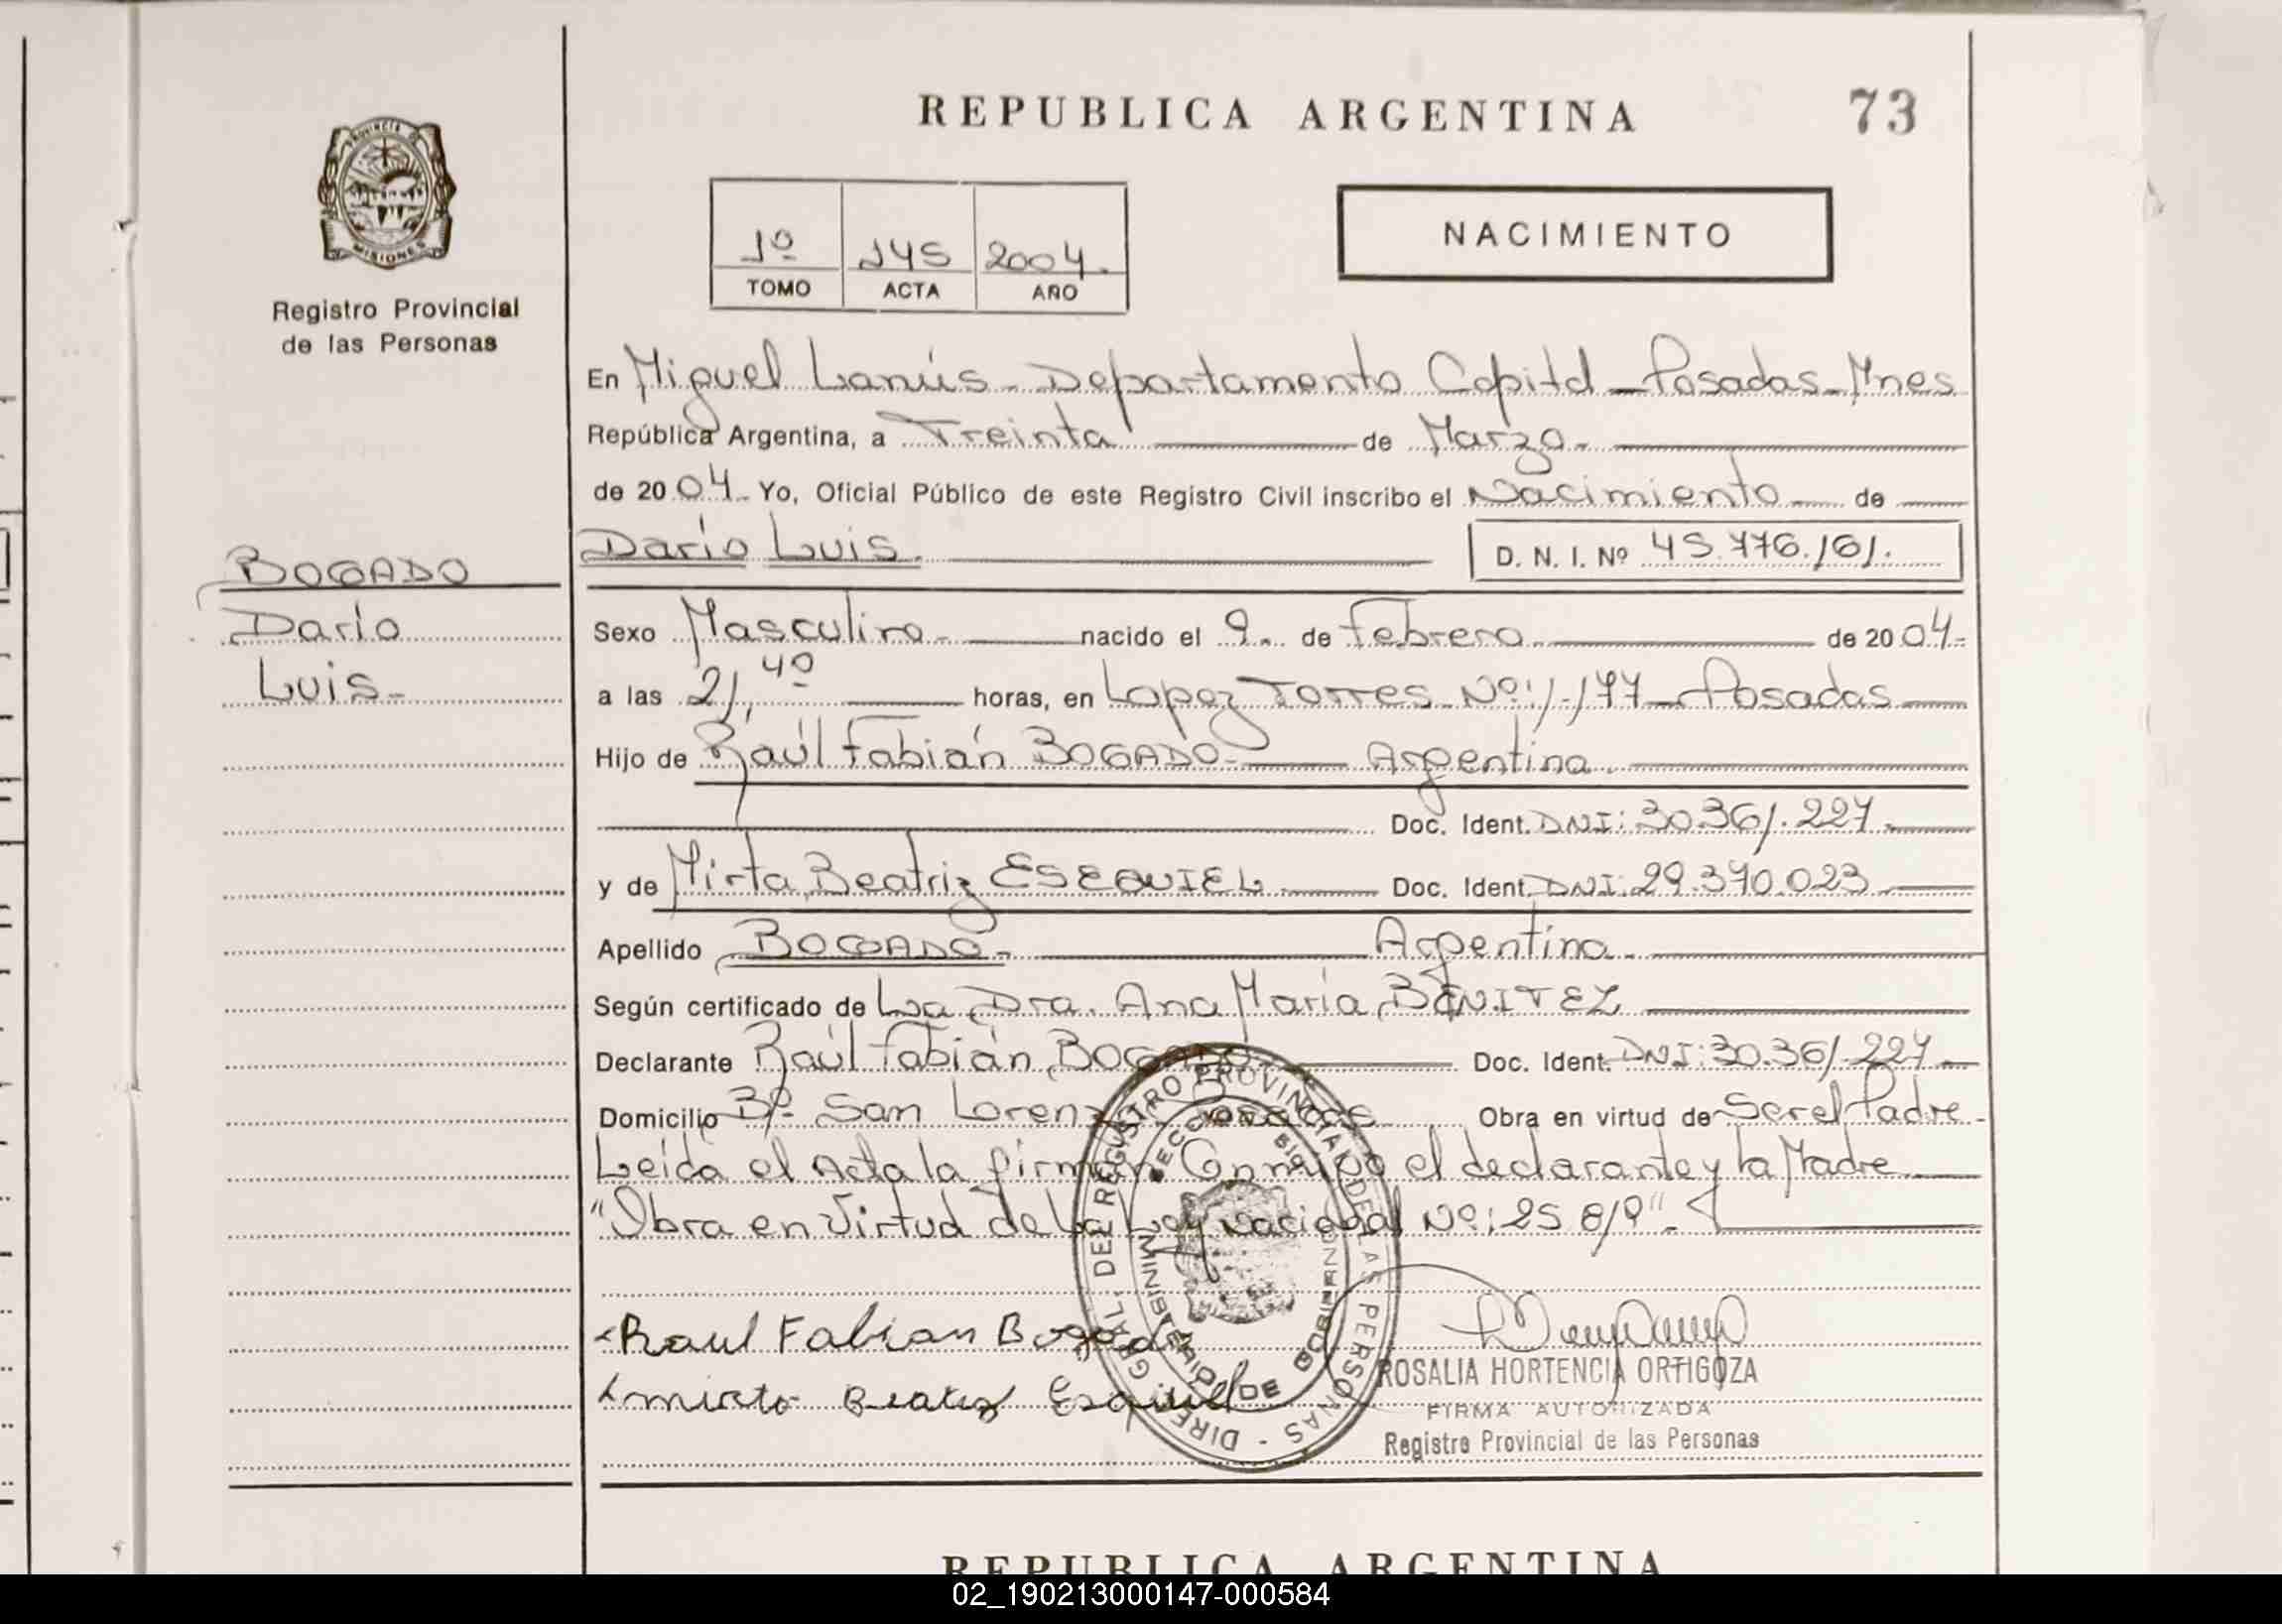 REPUBLICA ARGENTINA 73
PROVINCIA DE MISIONES
Registro Provincial
de las Personas
1º 145 2004.
TOMO ACTA AÑO
NACIMIENTO
En Miguel Lanús - Departamento Capital - Posadas - Mnes
República Argentina, a Treinta de Marzo.
de 2004. Yo, Oficial Público de este Registro Civil inscribo el Nacimiento de
BOGADO
Darío
Luis.
Darío Luis. D. N. I. Nº 45.776.161.
Sexo Masculino. nacido el 9. de Febrero. de 2004.
a las 21,40 horas, en Lopez Torres Nº: 1.177 - Posadas
Hijo de Raúl Fabián BOGADO. Argentina.
Doc. Ident. DNI: 30.361.227.
y de Mirta Beatriz ESEQUIEL. Doc. Ident. DNI: 29.370.023
Apellido BOGADO. Argentina.
Según certificado de La Dra. Ana María BENITEZ
Declarante Raúl Fabián BOGADO Doc. Ident. DNI: 30.361.227.
Domicilio Bº. San Lorenzo Posadas Obra en virtud de Ser el Padre.
Leída el Acta la firman Conmigo el declarante y la Madre
"Obra en Virtud de La Ley Nacional Nº: 25.819".
Raul Fabian Bogado
mirta Beatriz Esquiel
DIREC. GRAL. DEL REGISTRO PROVINCIAL DE LAS PERSONAS -
MINISTERIO DE GOBIERNO
ROSALIA HORTENCIA ORTIGOZA
FIRMA AUTORIZADA
Registro Provincial de las Personas
REPUBLICA ARGENTINA
02_190213000147-000584